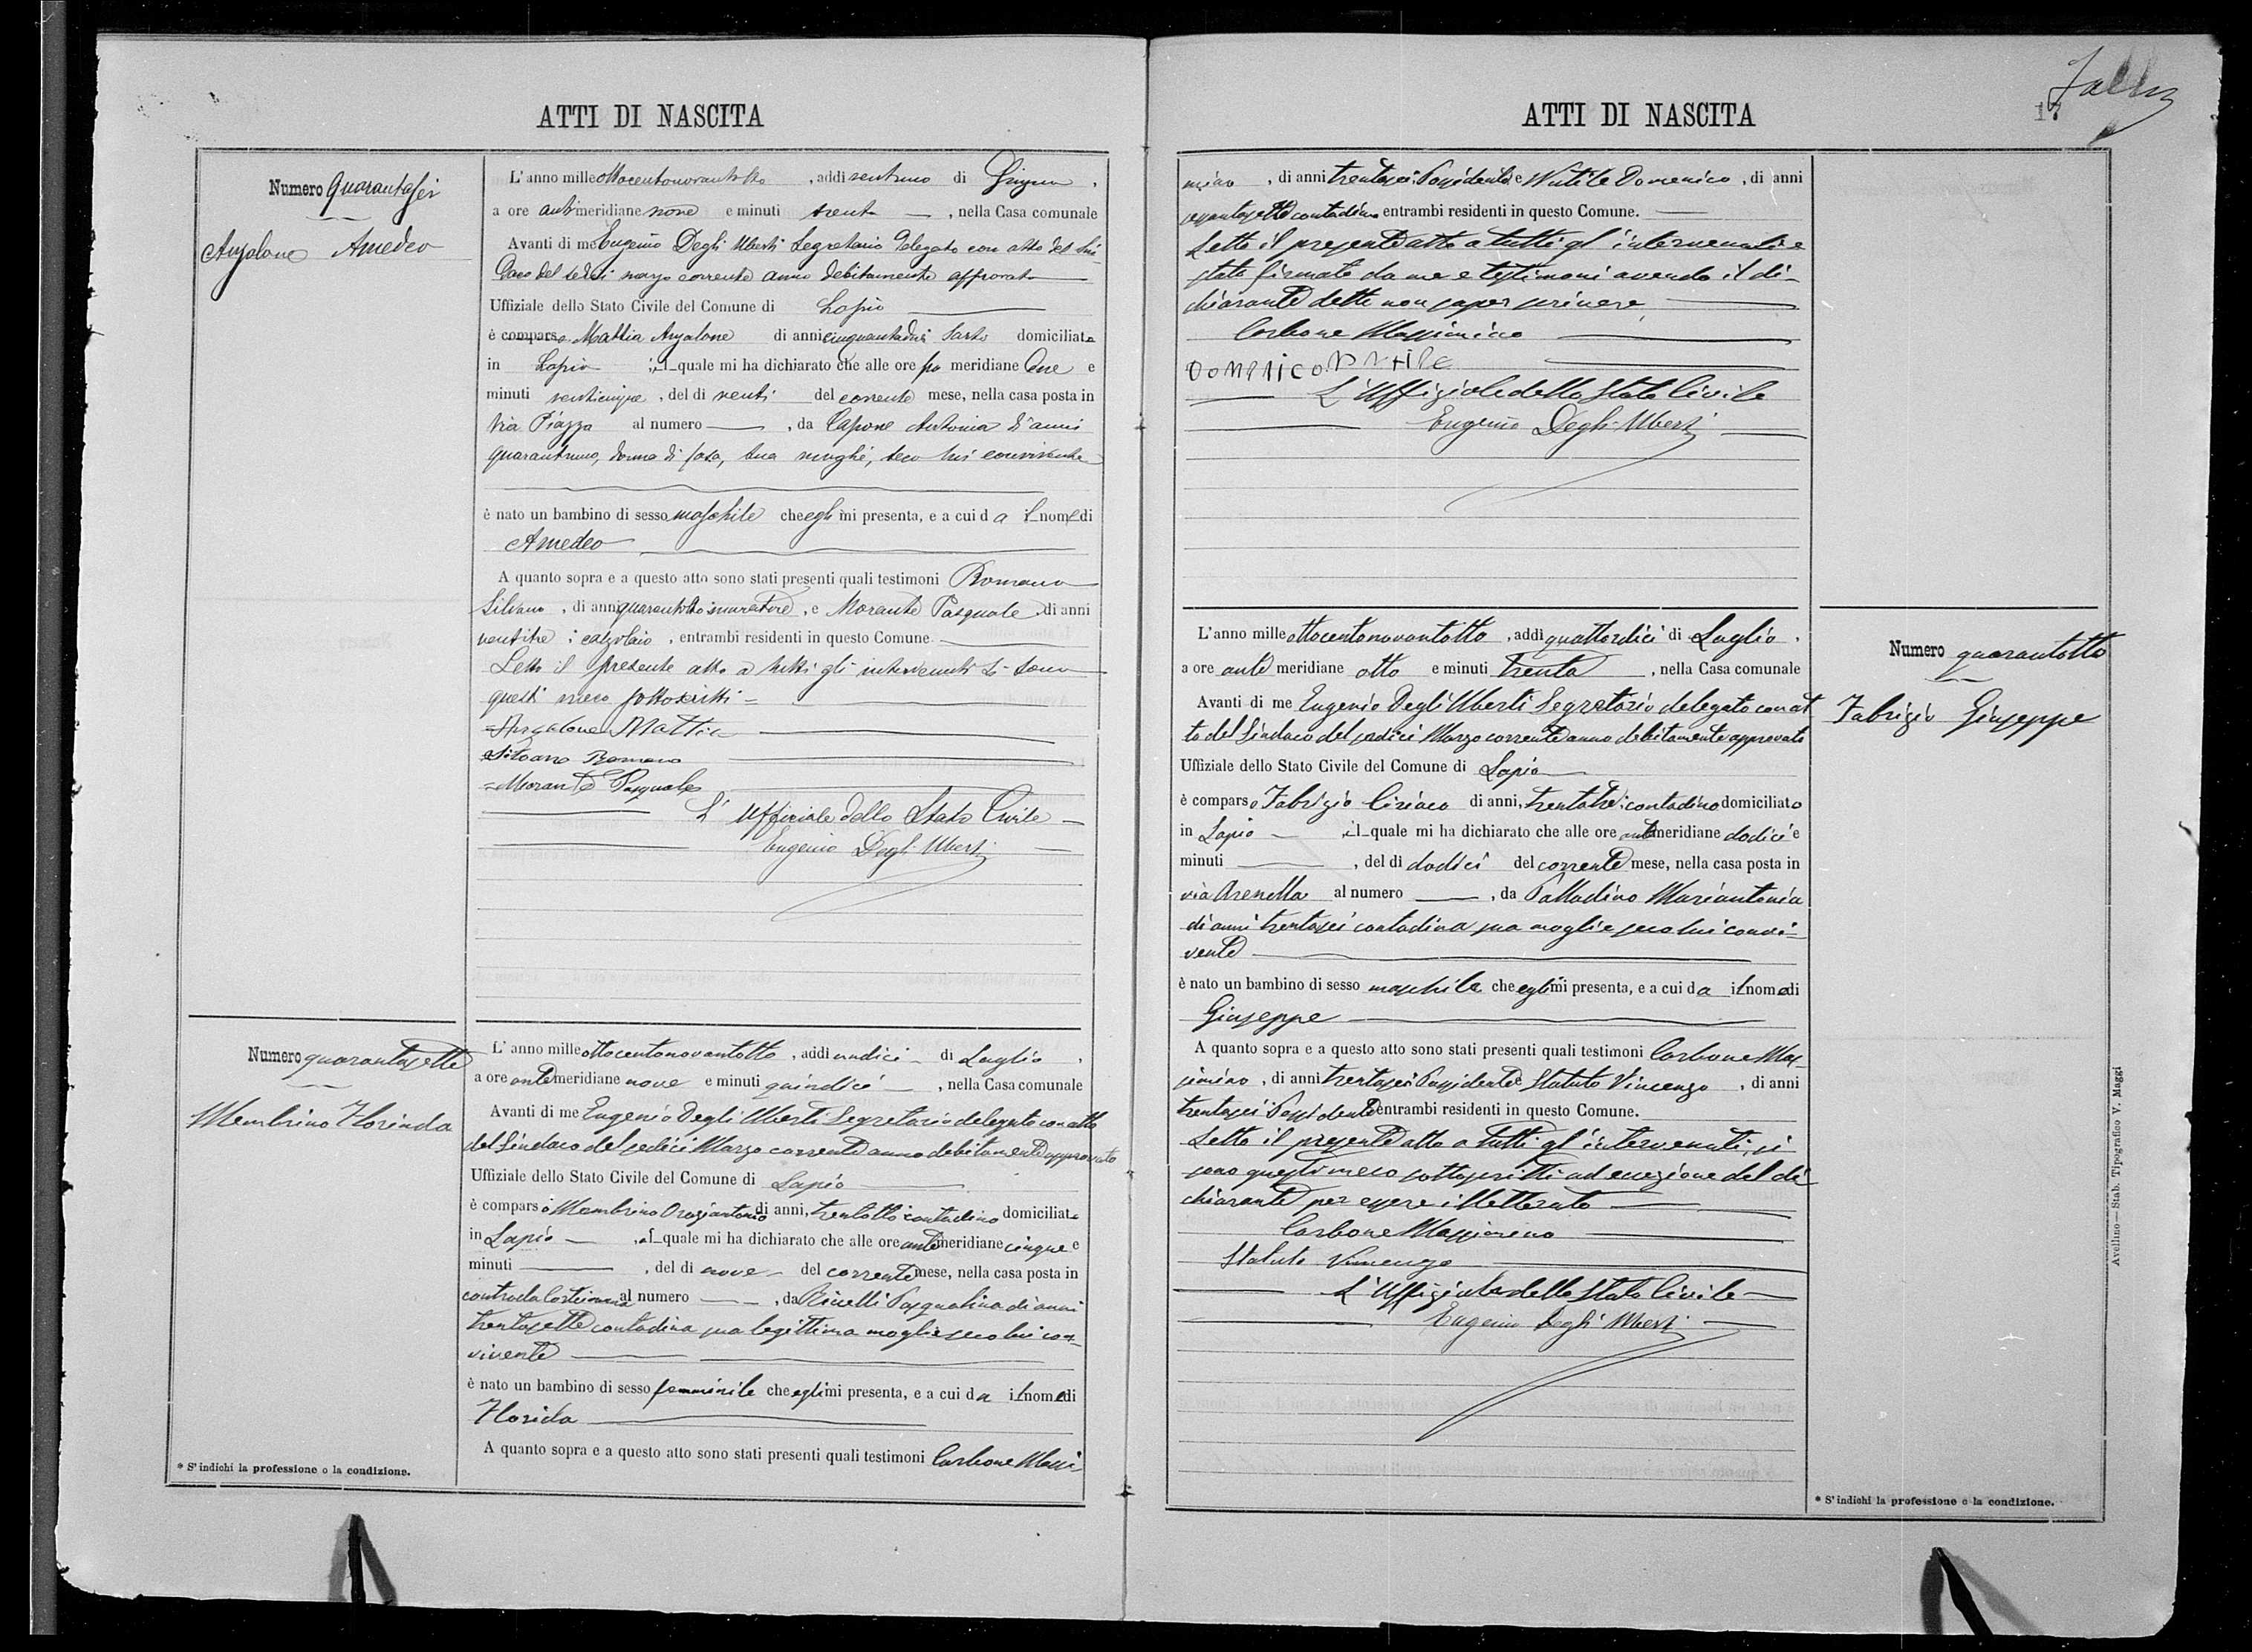 ATTI DI NASCITA
Numero Quarantasei
Anzalone Amedeo
L'anno mille ottocentonovantotto, addì ventuno di Giugno,
a ore antimeridiane nove e minuti trenta, nella Casa comunale
Avanti di me Eugenio Degli Uberti Segretario delegato con atto del Sin-
daco del sedici marzo corrente anno debitamente approvato
Uffiziale dello Stato Civile del Comune di Lapio
è comparso Mattia Anzalone di anni cinquantadue Sarto domiciliato
in Lapio, il quale mi ha dichiarato che alle ore po meridiane due e
minuti venticinque, del dì venti del corrente mese, nella casa posta in
Via Piazza al numero, da Capone Antonia di anni
quarantuno, donna di casa, sua moglie, seco lui convivente
è nato un bambino di sesso maschile che egli mi presenta, e a cui da il nome di
Amedeo
A quanto sopra e a questo atto sono stati presenti quali testimoni Romano
Silvano, di anni quarantotto muratore, e Morante Pasquale, di anni
ventitre, calzolaio, entrambi residenti in questo Comune.
Letto il presente atto a tutti gli intervenuti si sono
questi meco sottoscritti =
= Anzalone Mattia
= Silvano Romano
= Morante Pasquale
L'Uffiziale dello Stato Civile
Eugenio Degli Uberti
Numero quarantasette
Membrino Florinda
L'anno mille ottocentonovantotto, addì undici di Luglio,
a ore antemeridiane nove e minuti quindici, nella Casa comunale
Avanti di me Eugenio Degli Uberti Segretario delegato con atto
del Sindaco del sedici Marzo corrente anno debitamente approvato
Uffiziale dello Stato Civile del Comune di Lapio
è comparso Membrino Oraziantonio di anni, trentotto contadino domiciliato
in Lapio, il quale mi ha dichiarato che alle ore antemeridiane cinque e
minuti, del dì nove del corrente mese, nella casa posta in
contrada al numero, da Pasqualina di anni
trentasette contadina sua legittima moglie seco lui con-
vivente
è nato un bambino di sesso femminile che egli mi presenta, e a cui da il nome di
Florida
A quanto sopra e a questo atto sono stati presenti quali testimoni Carbone Massi-
* S'indichi la professione o la condizione.
ATTI DI NASCITA
17
mino, di anni trentasei Possidente e Nutile Domenico, di anni
sessantasette contadino entrambi residenti in questo Comune.
Letto il presente atto a tutti gl'intervenuti e
stato firmato da me e testimoni avendo il di-
chiarante detto non saper scrivere
Carbone Massimino
Domenico Nutile
L'Uffiziale dello Stato Civile
Eugenio Degli Uberti
Numero quarantotto
Fabrizio Giuseppe
L'anno mille ottocentonovantotto, addì quattordici di Luglio,
a ore ante meridiane otto e minuti trenta, nella Casa comunale
Avanti di me Eugenio Degli Uberti Segretario delegato con at
to del Sindaco del sedici Marzo corrente anno debitamente approvato
Uffiziale dello Stato Civile del Comune di Lapio
è comparso Fabrizio Ciriaco di anni, trentatre contadino domiciliato
in Lapio, il quale mi ha dichiarato che alle ore antemeridiane dodici e
minuti, del dì dodici del corrente mese, nella casa posta in
via Arenella al numero, da Palladino Mariantonia
di anni trentasei contadina sua moglie seco lui convi-
vente
è nato un bambino di sesso maschile che egli mi presenta, e a cui da il nome di
Giuseppe
A quanto sopra e a questo atto sono stati presenti quali testimoni Carbone Mas-
simino, di anni trentasei Possidente e Statuto Vincenzo, di anni
trentasei Possidente entrambi residenti in questo Comune.
Letto il presente atto a tutti gl'intervenuti, si
sono questi meco sottoscritti ad eccezione del di-
chiarante per essere illetterato
Carbone Massimino
Statuto Vincenzo
L'Uffiziale dello Stato Civile
Eugenio Degli Uberti
* S'indichi la professione o la condizione.
Avellino — Stab. Tipografico V. Maggi